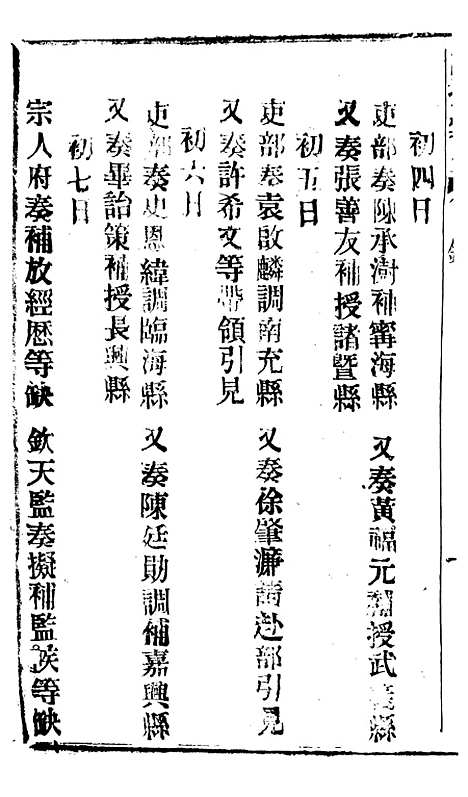 初四日
吏部奏陳承澍補甯海縣 又奏黃福元補授武義縣
又奏張善友補授諸暨縣
初五日
吏部奏袁啟麟調南充縣 又奏徐肇濂請赴部引見
又奏許希文等帶領引見
初六日
吏部奏史恩緯調臨海縣 又奏陳廷勛調補嘉興縣
又奏畢詒策補授長興縣
初七日
宗人府奏補放經歷等缺 欽天監奏擬補監候等缺